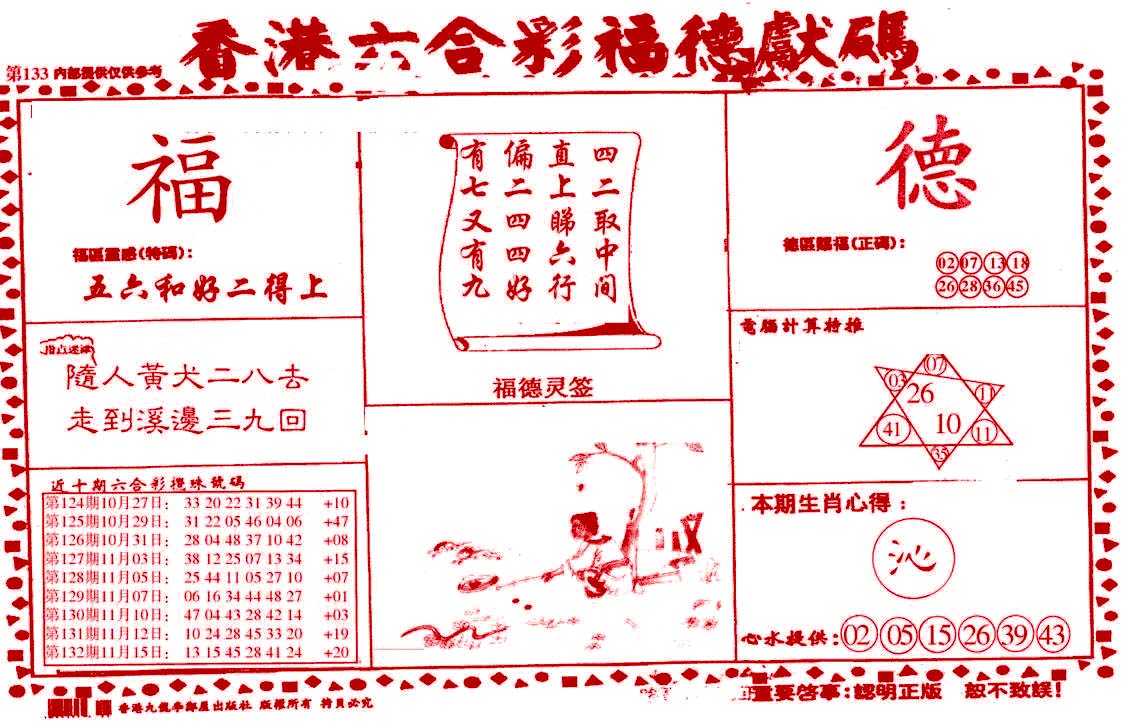 香港六合彩福德獻碼
第133 内部提供仅供参考
福
福區靈感(特碼):
五六和好二得上
隨人黃犬二八去
走到溪邊三九回
近十期六合彩攪珠號碼
第124期10月27日: 33 20 22 31 39 44 +10
第125期10月29日: 31 22 05 46 04 06 +47
第126期10月31日: 28 04 48 37 10 42 +08
第127期11月03日: 38 12 25 07 13 34 +15
第128期11月05日: 25 44 11 05 27 10 +07
第129期11月07日: 06 16 34 44 48 27 +01
第130期11月10日: 47 04 43 28 42 14 +03
第131期11月12日: 10 24 28 45 33 20 +19
第132期11月15日: 13 15 45 28 41 24 +20
四二取中间
直上睇六行
偏二四四好
有七又有九
福德灵签
德
德區賜福(正碼):
02 07 13 18
26 28 36 45
電腦計算特推
07
03 26 11
41 10 11
35
本期生肖心得:
沁
心水提供: 02 05 15 26 39 43
重要啓事:認明正版 恕不致誤!
香港九龍 出版社 版權所有 拷貝必究